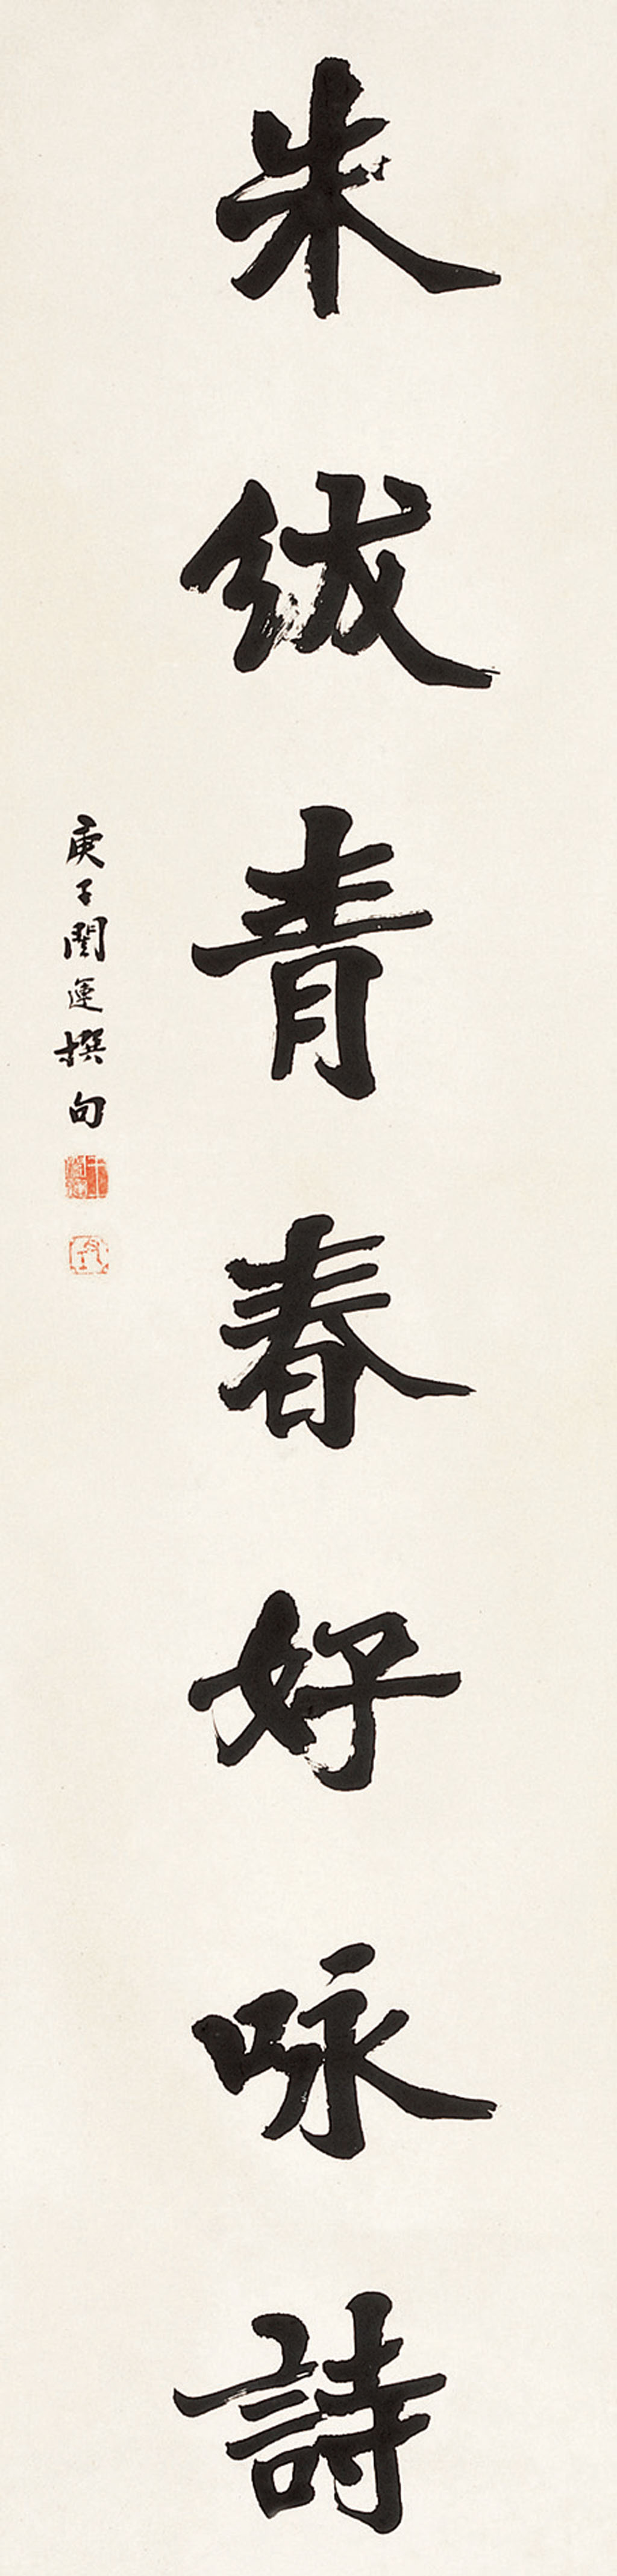 朱紱青春好咏詩
庚子闓運撰句